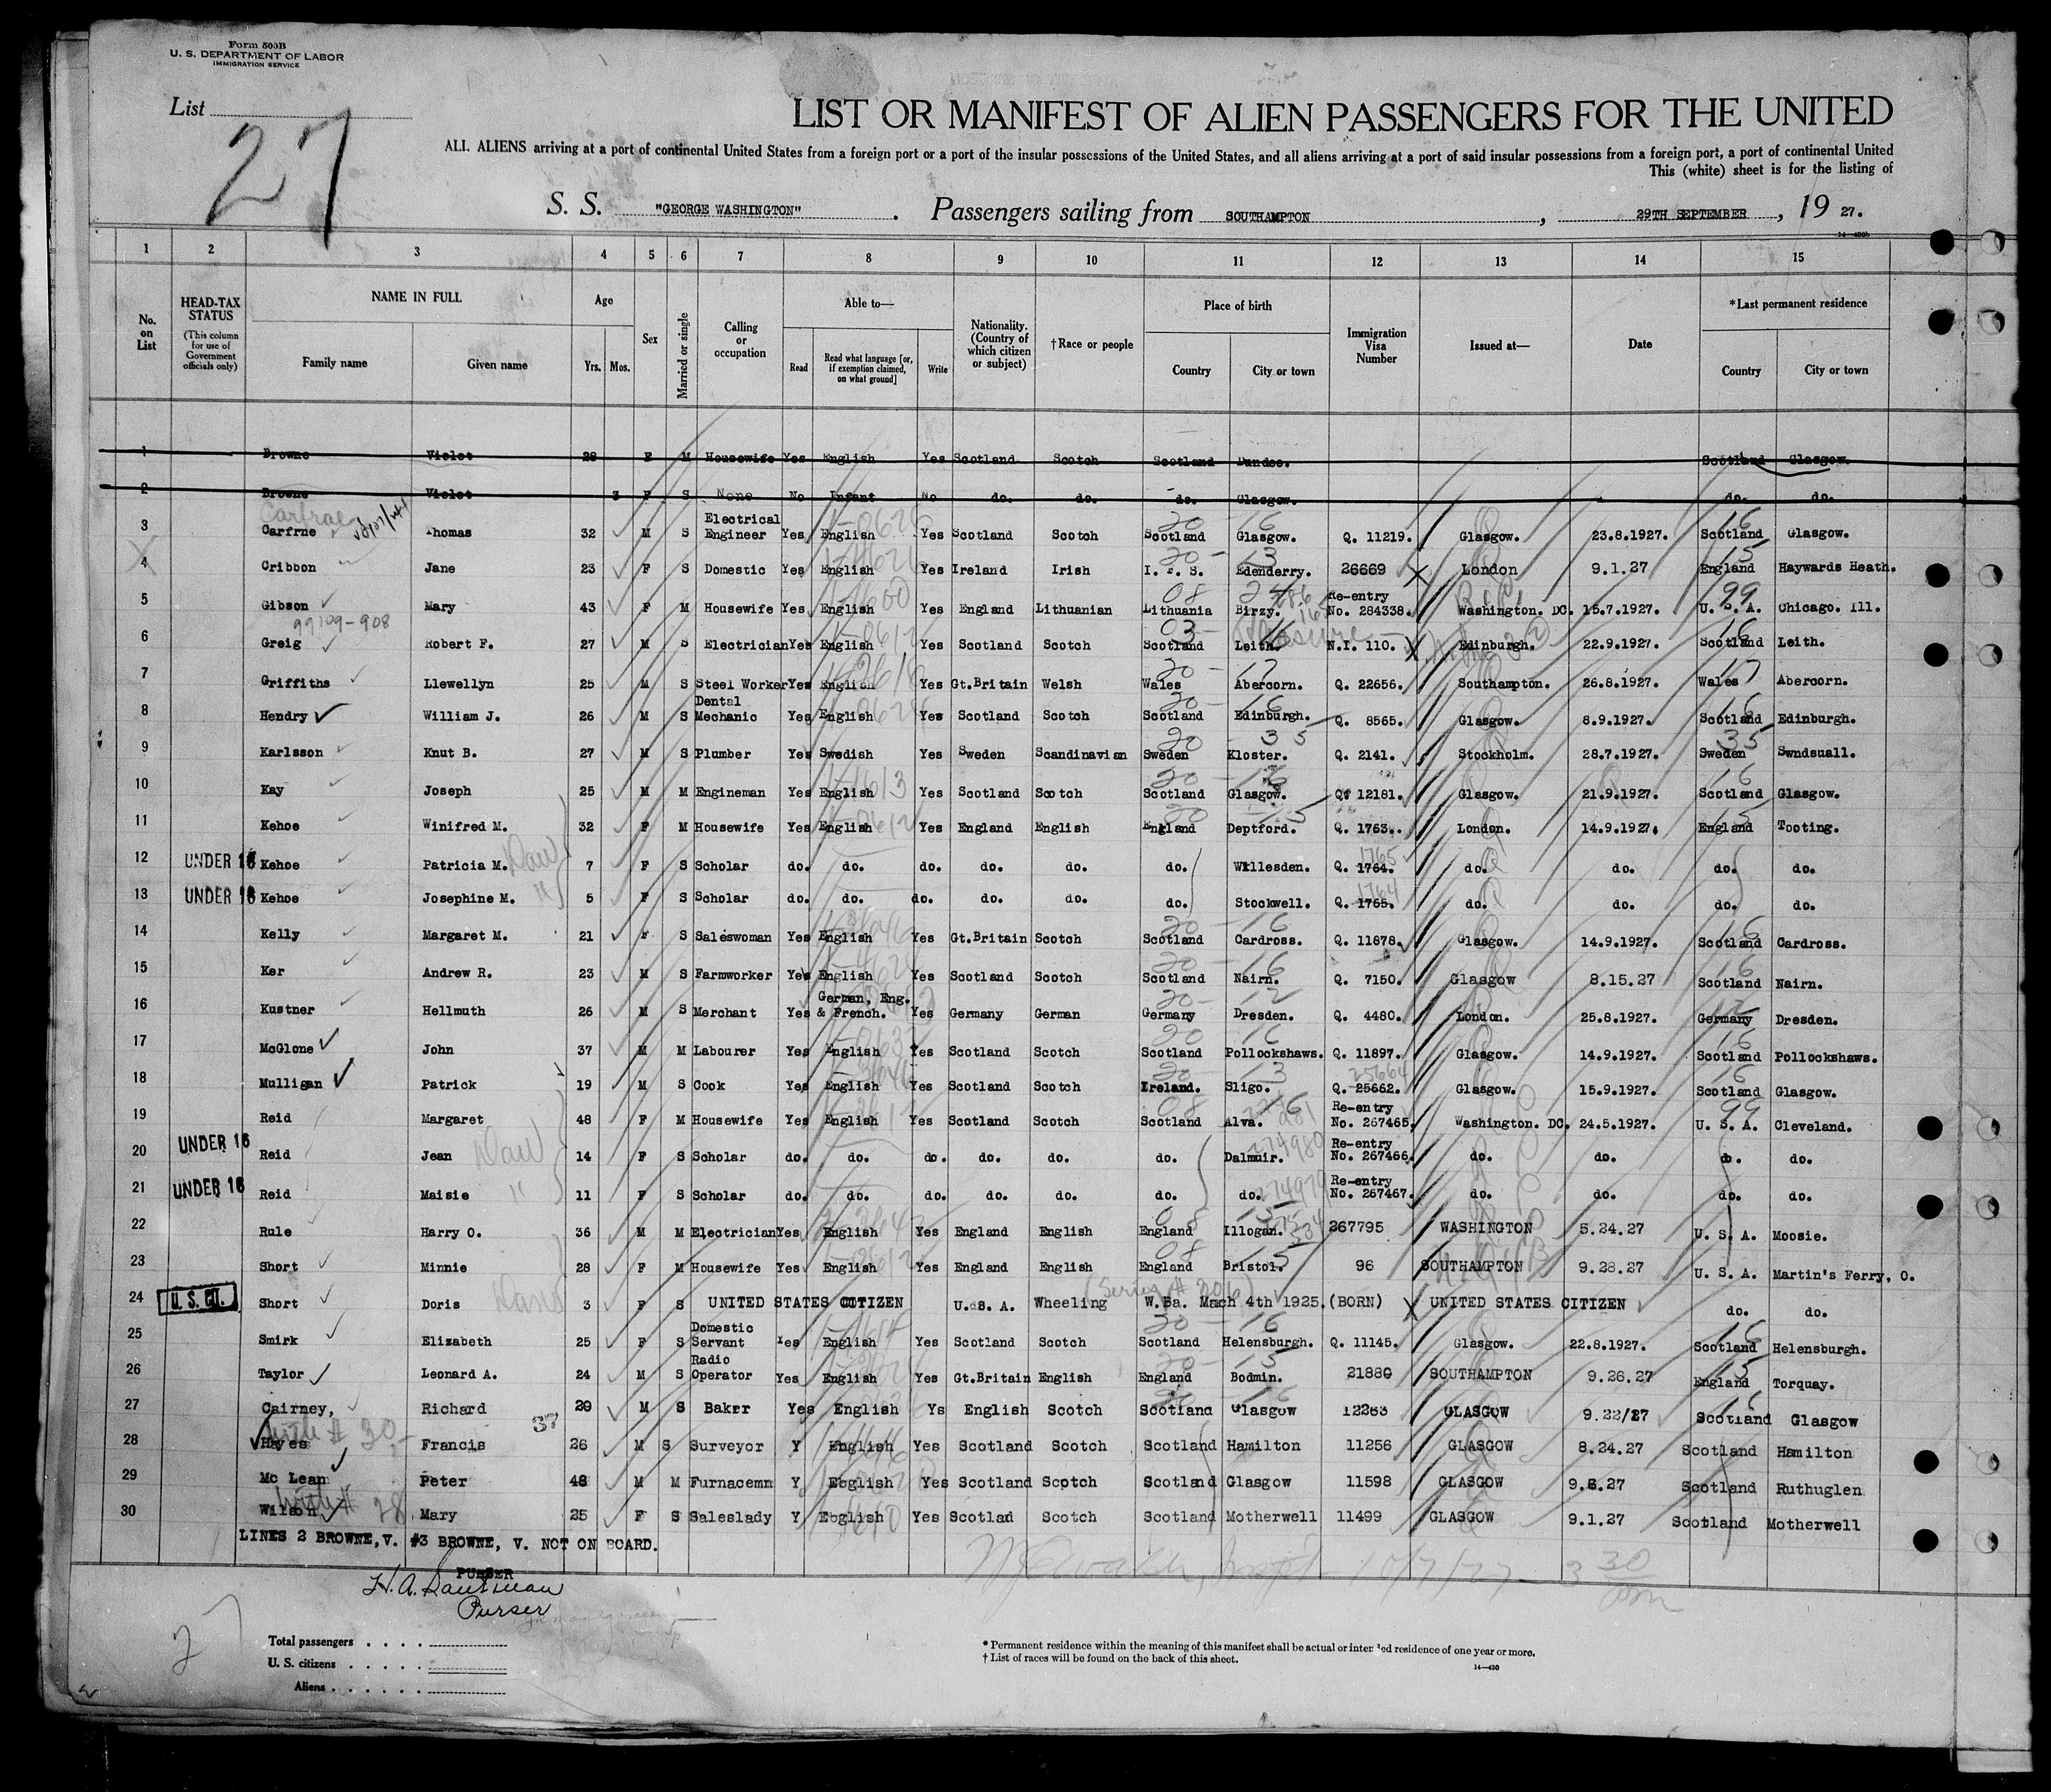 Form 500B
U. S. DEPARTMENT OF LABOR
IMMIGRATION SERVICE
List
27
LIST OR MANIFEST OF ALIEN PASSENGERS FOR THE UNITED
ALL ALIENS arriving at a port of continental United States from a foreign port or a port of the insular possessions of the United States, and all aliens arriving at a port of said insular possessions from a foreign port, a port of continental United
This (white) sheet is for the listing of
S. S. "GEORGE WASHINGTON" . Passengers sailing from SOUTHAMPTON , 29TH SEPTEMBER , 19 27.
1 2 3 4 5 6 7 8 9 10 11 12 13 14 15
No. on List
HEAD-TAX STATUS (This column for use of Government officials only)
NAME IN FULL Family name Given name
Age Yrs. Mos.
Sex
Married or single
Calling or occupation
Able to— Read Read what language [or, if exemption claimed, on what ground] Write
Nationality. (Country of which citizen or subject)
†Race or people
Place of birth Country City or town
Immigration Visa Number
Issued at—
Date
*Last permanent residence Country City or town
1 Browne Violet 28 F M Housewife Yes English Yes Scotland Scotch Scotland Dundee. Scotland Glasgow.
2 Browne Violet 3 F S None No Infant No do. do. do. Glasgow. do. do.
Carfrae
3 Carfrne Thomas 32 M S Electrical Engineer Yes English Yes Scotland Scotch Scotland Glasgow. Q. 11219. Glasgow. 23.8.1927. Scotland Glasgow.
4 Cribbon Jane 23 F S Domestic Yes English Yes Ireland Irish I. F. S. Edenderry. 26669 London 9.1.27 England Haywards Heath.
5 Gibson Mary 43 F M Housewife Yes English Yes England Lithuanian Lithuania Birzy. Re-entry No. 284338. Washington. DC. 15.7.1927. U. S. A. Chicago. Ill.
99109-908
6 Greig Robert F. 27 M S Electrician Yes English Yes Scotland Scotch Scotland Leith. N.I. 110. Edinburgh. 22.9.1927. Scotland Leith.
7 Griffiths Llewellyn 25 M S Steel Worker Yes English Yes Gt.Britain Welsh Wales Abercorn. Q. 22656. Southampton. 26.8.1927. Wales Abercorn.
8 Hendry William J. 26 M S Dental Mechanic Yes English Yes Scotland Scotch Scotland Edinburgh. Q. 8565. Glasgow. 8.9.1927. Scotland Edinburgh.
9 Karlsson Knut B. 27 M S Plumber Yes Swedish Yes Sweden Scandinavian Sweden Kloster. Q. 2141. Stockholm. 28.7.1927. Sweden Swndsuall.
10 Kay Joseph 25 M M Engineman Yes English Yes Scotland Scotch Scotland Glasgow. Q. 12181. Glasgow. 21.9.1927. Scotland Glasgow.
11 Kehoe Winifred M. 32 F M Housewife Yes English Yes England English England Deptford. Q. 1763. London. 14.9.1927. England Tooting.
12 UNDER 16 Kehoe Patricia M. 7 F S Scholar do. do. do. do. do. do. Willesden. Q. 1764. 1765 do. do. do. do.
13 UNDER 16 Kehoe Josephine M. 5 F S Scholar do. do. do. do. do. do. Stockwell. Q. 1765. 1764 do. do. do. do.
14 Kelly Margaret M. 21 F S Saleswoman Yes English Yes Gt.Britain Scotch Scotland Cardross. Q. 11878. Glasgow. 14.9.1927. Scotland Cardross.
15 Ker Andrew R. 23 M S Farmworker Yes English Yes Scotland Scotch Scotland Nairn. Q. 7150. Glasgow 8.15.27 Scotland Nairn.
16 Kustner Hellmuth 26 M S Merchant Yes German, Eng. & French. Yes Germany German Germany Dresden. Q. 4480. London. 25.8.1927. Germany Dresden.
17 McGlone John 37 M M Labourer Yes English Yes Scotland Scotch Scotland Pollockshaws. Q. 11897. Glasgow. 14.9.1927. Scotland Pollockshaws.
18 Mulligan Patrick 19 M S Cook Yes English Yes Scotland Scotch Ireland. Sligo. Q. 25662. 25664 Glasgow. 15.9.1927. Scotland Glasgow.
19 Reid Margaret 48 F M Housewife Yes English Yes Scotland Scotch Scotland Alva. Re-entry No. 267465. Washington. DC. 24.5.1927. U. S. A. Cleveland.
20 UNDER 16 Reid Jean 14 F S Scholar do. do. do. do. do. do. Dalmuir. Re-entry No. 267466. do. do. do. do.
21 UNDER 16 Reid Maisie 11 F S Scholar do. do. do. do. do. do. do. Re-entry No. 267467. do. do. do. do.
22 Rule Harry O. 36 M M Electrician Yes English Yes England English England Illogan. 267795 WASHINGTON 5.24.27 U. S. A. Moosie.
23 Short Minnie 28 F M Housewife Yes English Yes England English England Bristol. 96 SOUTHAMPTON 9.28.27 U. S. A. Martin's Ferry, O.
24 U. S. CIT. Short Doris 3 F S UNITED STATES CITIZEN U.S. A. Wheeling W.Ba. Mach 4th 1925. (BORN) UNITED STATES CITIZEN do. do.
25 Smirk Elizabeth 25 F S Domestic Servant Yes English Yes Scotland Scotch Scotland Helensburgh. Q. 11145. Glasgow. 22.8.1927. Scotland Helensburgh.
26 Taylor Leonard A. 24 M S Radio Operator Yes English Yes Gt.Britain English England Bodmin. 21880 SOUTHAMPTON 9.26.27 England Torquay.
27 Cairney, Richard 29 M S Baker Yes English Ys English Scotch Scotland Glasgow 12263 GLASGOW 9.22/27 Scotland Glasgow
with # 30
28 Hayes Francis 37 26 M S Surveyor Y English Yes Scotland Scotch Scotland Hamilton 11256 GLASGOW 8.24.27 Scotland Hamilton
29 Mc Lean Peter 48 M M Furnacemn Y Eoglish Yes Scotland Scotch Scotland Glasgow 11598 GLASGOW 9.6.27 Scotland Ruthuglen
with # 28
30 Wilson Mary 25 F S Saleslady Y Eoglish Yes Scotlad Scotch Scotland Motherwell 11499 GLASGOW 9.1.27 Scotland Motherwell
LINES 2 BROWNE, V. #3 BROWNE, V. NOT ON BOARD.
PURSER
Purser
Total passengers . . . .
U. S. citizens . . . . .
Aliens . . . . . .
* Permanent residence within the meaning of this manifest shall be actual or intended residence of one year or more.
† List of races will be found on the back of this sheet.
14—430